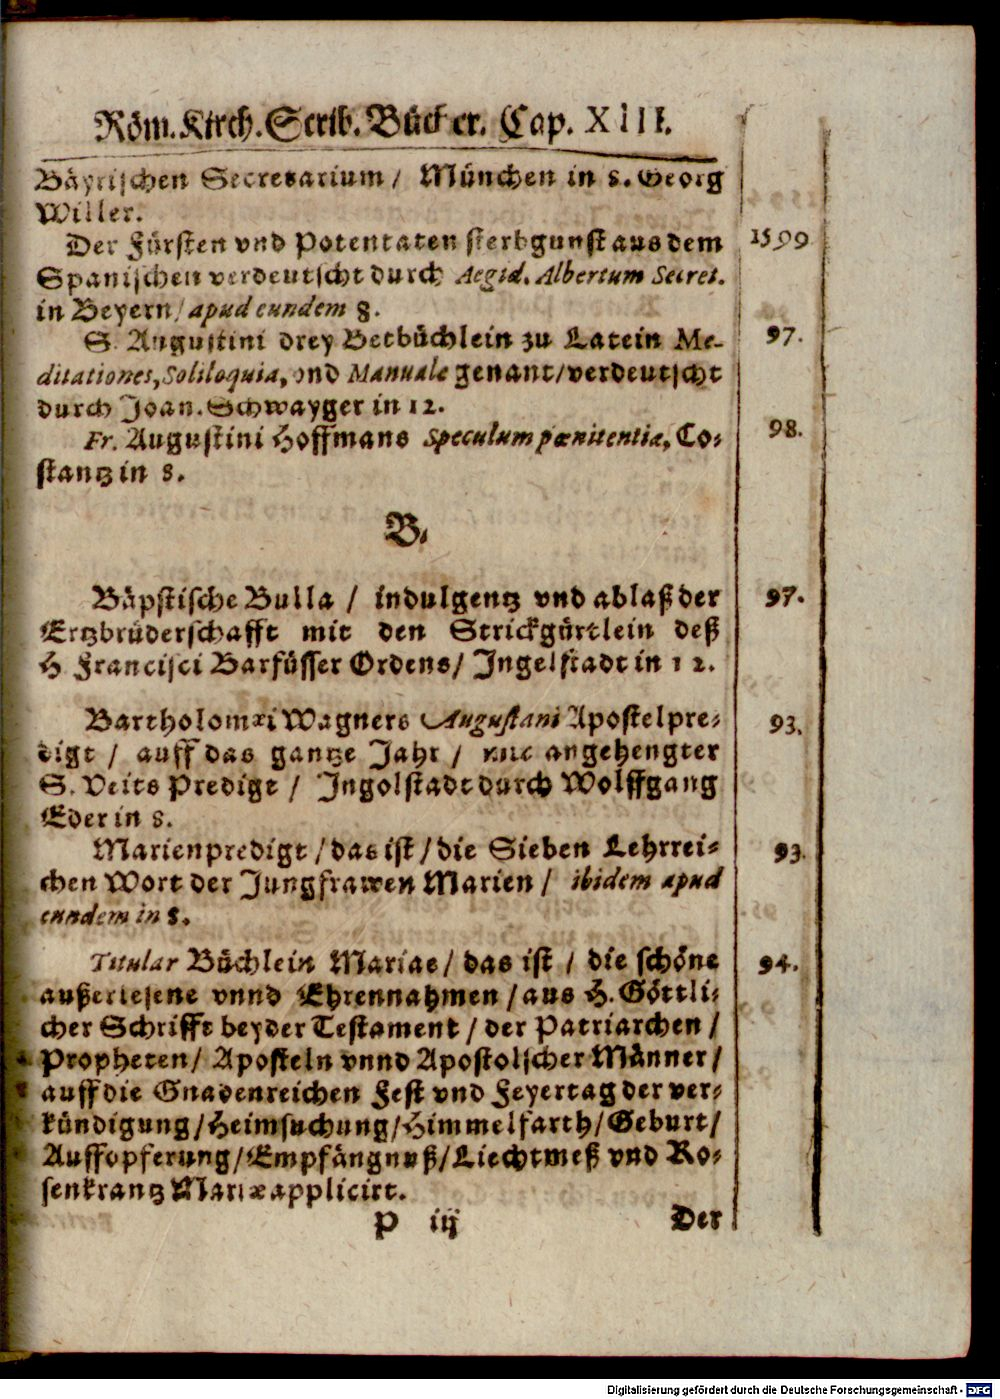 Röm. Kirch. Scrib. Bücher. Cap. XIII.
Bäyrischen Secretarium / München in 8. Georg
Willer.
Der Fürsten vnd Potentaten sterbgunst aus dem 1599
Spanischen verdeutscht durch Aegid. Albertum Secret.
in Beyern / apud eundem 8.
S. Augustini drey Betbüchlein zu Latein Me- 97.
ditationes, Soliloquia, vnd Manuale genant / verdeutscht
durch Joan. Schwayger in 12.
Fr. Augustini Hoffmans Speculum pœnitentiæ, Co- 98.
stantz in 8.
B.
Bäpstische Bulla / indulgentz vnd ablaß der 97.
Ertzbrüderschafft mit den Strickgürtlein deß
H Francisci Barfüsser Ordens / Ingelstadt in 12.
Bartholomæi Wagners Augustani Apostelpre- 93.
digt / auff das gantze Jahr / angehengter
S. Veits Predigt / Ingolstadt durch Wolffgang
Eder in 8.
Marienpredigt / das ist / die Sieben Lehrrei- 93.
chen Wort der Jungfrawen Marien / ibidem apud
eundem in 8.
Titular Büchlein Mariae / das ist / die schöne 94.
außerlesene vnnd Ehrennahmen / aus H. Göttli-
cher Schrifft beyder Testament / der Patriarchen /
Propheten / Aposteln vnnd Apostolscher Männer /
auff die Gnadenreichen Fest vnd Feyertag der ver-
kündigung / Heimsuchung / Himmelfarth / Geburt /
Auffopferung / Empfängnuß / Liechtmeß vnd Ro-
senkrantz Mariæ applicirt.
P iij Der
Digitalisierung gefördert durch die Deutsche Forschungsgemeinschaft - DFG